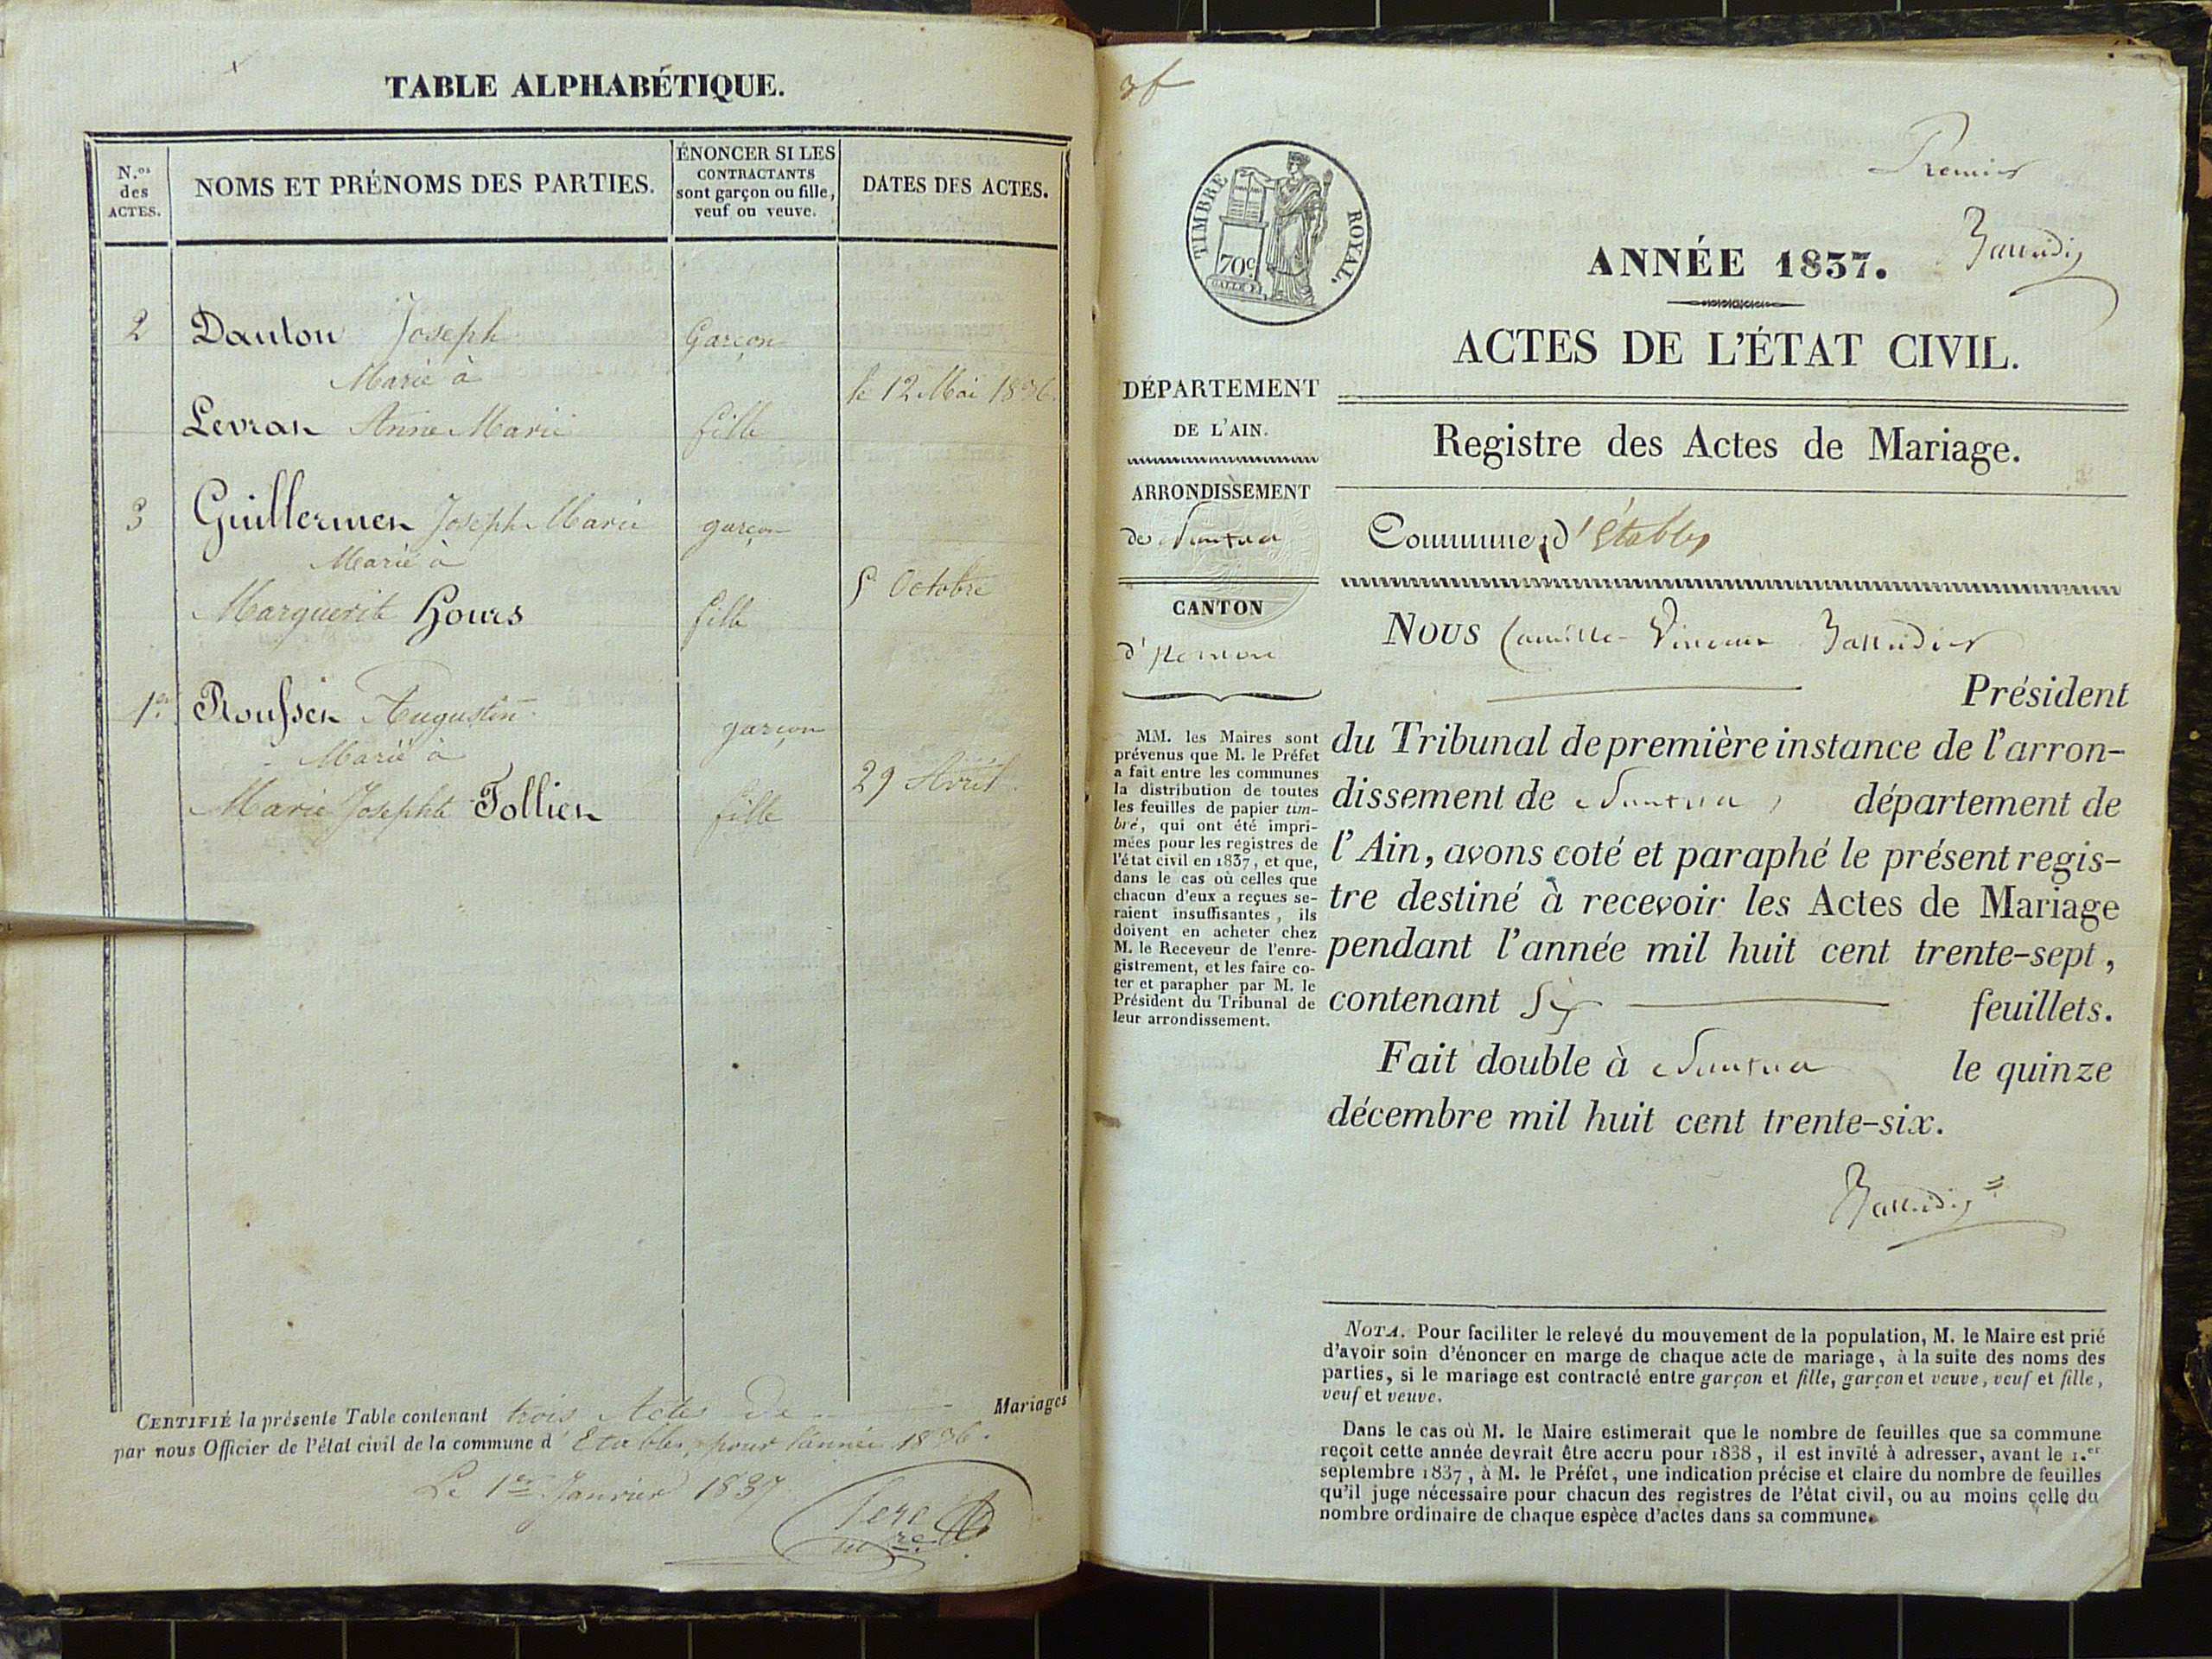 TABLE ALPHABÉTIQUE.
N.os
des
ACTES.
NOMS ET PRÉNOMS DES PARTIES.
ÉNONCER SI LES
CONTRACTANTS
sont garçon ou fille,
veuf ou veuve.
DATES DES ACTES.
2 Danton Joseph Garçon
Marié à
le 12 Mai 1836.
Levran Anne Marie fille
3 Guillermen Joseph Marie garçon
Marié à
5 Octobre
Marguerite Hours fille
1er Roussen Augustin garçon
Marié à
29 Avril
Marie Josephte Tollien fille
CERTIFIÉ la présente Table contenant trois Actes de Mariages
par nous Officier de l'état civil de la commune d'Etables pour l'année 1836.
Le 1er Janvier 1837
Premier
TIMBRE ROYAL.
70c
ANNÉE 1837.
ACTES DE L'ÉTAT CIVIL.
Registre des Actes de Mariage.
DÉPARTEMENT
DE L'AIN.
ARRONDISSEMENT
de Nantua
CANTON
MM. les Maires sont
prévenus que M. le Préfet
a fait entre les communes
la distribution de toutes
les feuilles de papier tim-
bré, qui ont été impri-
mées pour les registres de
l'état civil en 1837, et que,
dans le cas où celles que
chacun d'eux a reçues se-
raient insuffisantes, ils
doivent en acheter chez
M. le Receveur de l'enre-
gistrement, et les faire co-
ter et parapher par M. le
Président du Tribunal de
leur arrondissement.
Commune d'Etables
NOUS Camille Vincent
Président
du Tribunal de première instance de l'arron-
dissement de Nantua, département de
l'Ain, avons coté et paraphé le présent regis-
tre destiné à recevoir les Actes de Mariage
pendant l'année mil huit cent trente-sept,
contenant Six feuillets.
Fait double à Nantua le quinze
décembre mil huit cent trente-six.
NOTA. Pour faciliter le relevé du mouvement de la population, M. le Maire est prié
d'avoir soin d'énoncer en marge de chaque acte de mariage, à la suite des noms des
parties, si le mariage est contracté entre garçon et fille, garçon et veuve, veuf et fille,
veuf et veuve.
Dans le cas où M. le Maire estimerait que le nombre de feuilles que sa commune
reçoit cette année devrait être accru pour 1838, il est invité à adresser, avant le 1.er
septembre 1837, à M. le Préfet, une indication précise et claire du nombre de feuilles
qu'il juge nécessaire pour chacun des registres de l'état civil, ou au moins celle du
nombre ordinaire de chaque espèce d'actes dans sa commune.